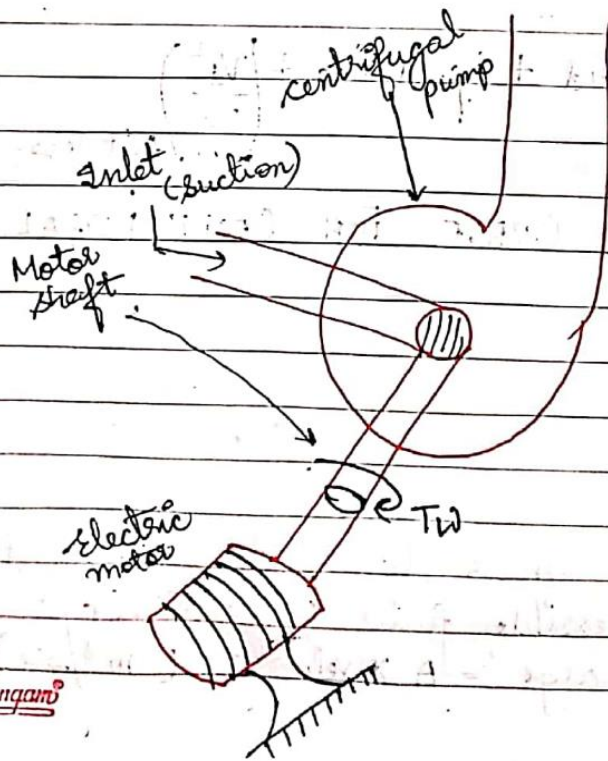 centrifugal
pump
Inlet (suction)
Motor
shaft
Tω
Electric
motor